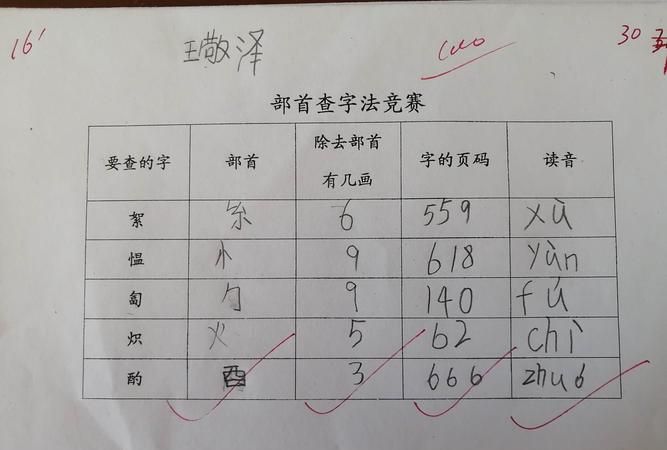 16'
王敬泽
30
部首查字法竞赛
要查的字 部首 除去部首有几画 字的页码 读音
絮 糸 6 559 xù
愠 忄 9 618 yùn
匐 勹 9 140 fú
炽 火 5 62 chì
酌 酉 3 666 zhuó